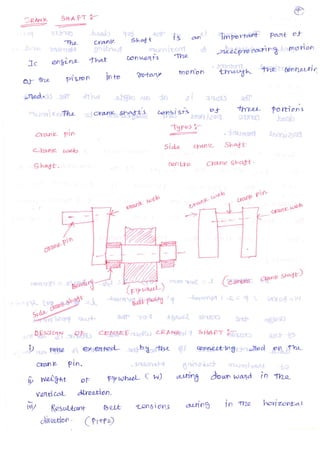 CRANK SHAFT :-
The crank shaft is an important part of
Ic engine that converts The reciprocating motion
of the piston into rotary motion through the connecting
rod.
The crank shafts consists of three portions
Types :-
crank pin
Side crank shaft
crank web
Shaft.
centre crank shaft.
crank web
crank web
crank pin
crank web
crank pin
Bearing
(Flywheel)
Belt Pulley
Side crank shaft
(centre crank shaft)
DESIGN OF CENTRE CRANK SHAFT :-
i) Force exerted by the connecting rod on the
crank pin.
ii) Weight of Flywheel (W) acting downward in The
vertical direction.
iii) Resultant Belt tensions acting in The horizontal
direction. (P1+P2)